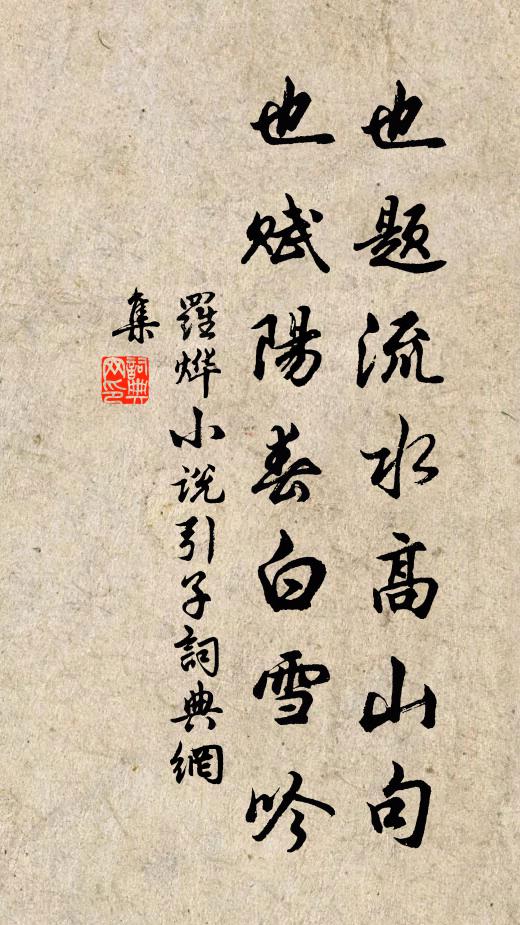 也题流水高山句
也赋陽春白雪吟
羅烨小说引子詞典網
集
詞典
网印